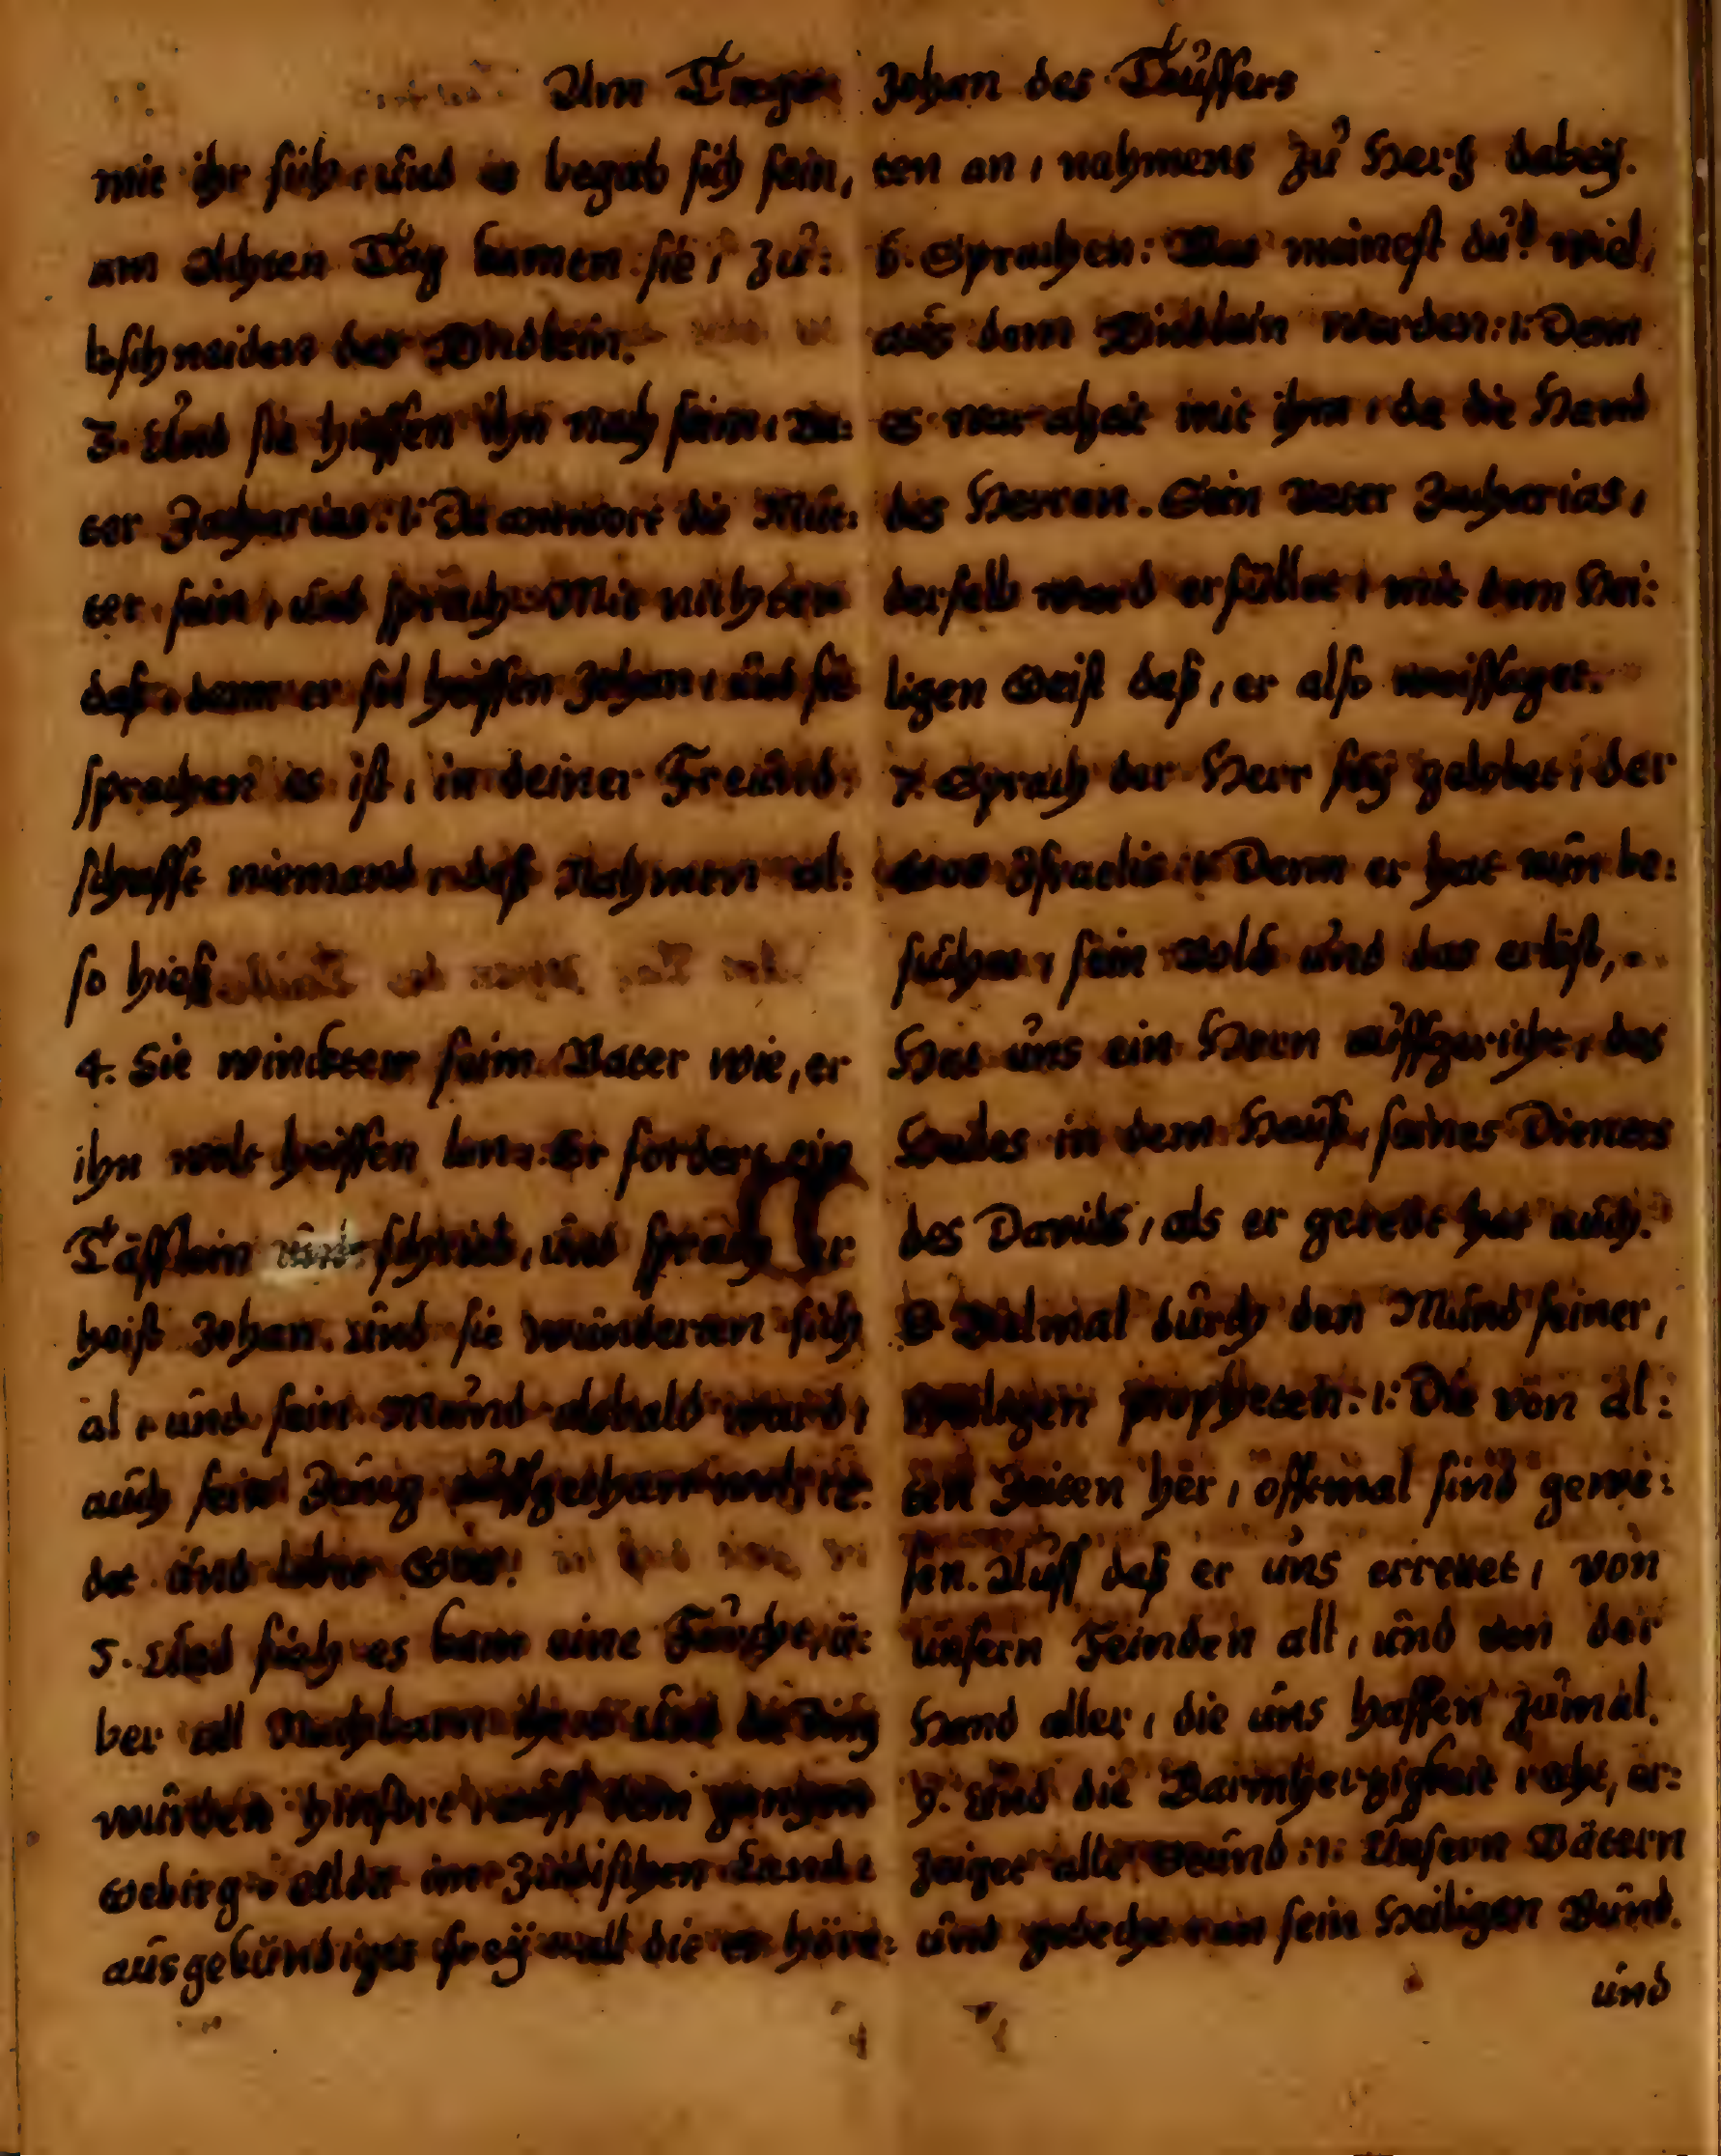 Am Tage Johan des Täuffers
mit ihr sich, und es begab sich fein,
am Achten Tag kamen sie, zu:
bschneiden das Kindlein.
3. Und sie hiessen ihn nach seim, Va:
ter Zacharias: Da antwort die Mut:
ter fein, und sprach Mit nichten
daß, dann er sol heissen Johan, und sie
sprachen es ist, in deiner Freund:
schafft niemand, daß Nahmen al:
so hieß
4. Sie winckten seim Vater wie, er
ihn wolt heissen lan, Er fordert ein
Täfflein und schrieb, und sprach er
heist Johan. und sie wunderten sich
al, und sein Mund alsbald ward,
auch sein Zung auffgethan und re:
det und lobte Gott.
5. Und sich es kam eine Furcht, ü:
ber all Nachbarn und die Ding
wurden auff dem gantzen
Gebirg, im Jüdischen Lande
ausgekündiget frey all die es hör:
ten an, nahmens zu Hertz dabey.
6. Sprachen: Was meinest du? wiel,
aus dem Kindlein werden: Denn
es war mit ihm, da die Hand
des Herren. Sein Vater Zacharias,
derselb ward erfüllet, mit dem Hei:
ligen Geist daß, er also weissaget.
7. Sprach der Herr sey gelobet, der
Gott Israelis: Denn er hat nun be:
suchet, sein Volck und das erlöst,
Hat uns ein Horn auffgericht, des
Heiles in dem Hauß, seines Dieners
des Davids, als er geredt hat auch.
8 Vielmal durch den Mund seiner,
Heiligen propheten: Die von al:
ten Zeiten her, offtmal sind gewe:
sen. Auff daß er uns errettet, von
unsern Feinden all, und von der
Hand aller, die uns hassen zumal.
9. Und die Barmhertzigkeit recht, er:
zeiget alle Stund: Unsern Vätern
und gedecht an sein Heiligen Bund.
und